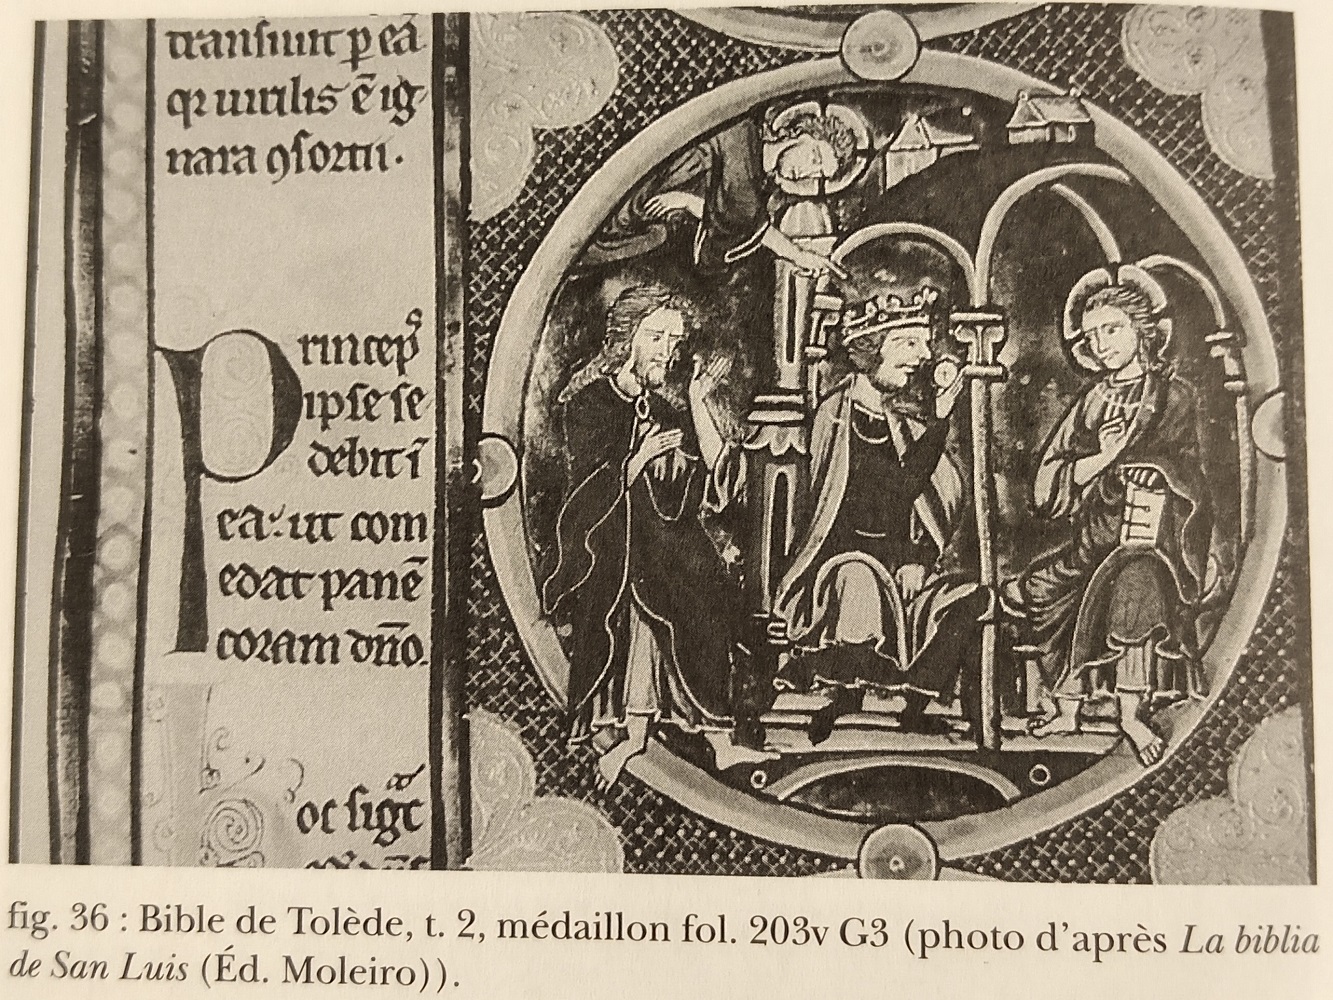 transiuit p ea
qr uirilis ē ig
nara ꝯsortii.
Princeps
ipse se
debit ī
ea. ut com
edat panē
coram dn̄o.
oc sigͨt
fig. 36 : Bible de Tolède, t. 2, médaillon fol. 203v G3 (photo d'après La biblia
de San Luis (Éd. Moleiro)).